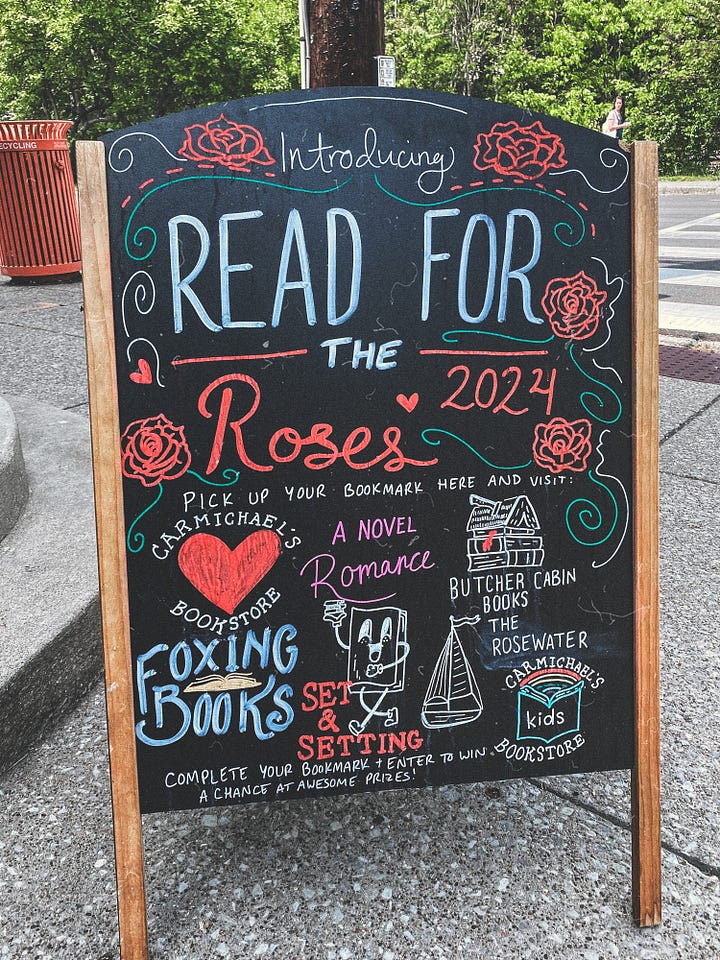 ECYCLING
Introducing
READ FOR
THE
Roses
2024
PICK UP YOUR BOOKMARK HERE AND VISIT:
CARMICHAEL'S
BOOKSTORE
A NOVEL
Romance
BUTCHER CABIN
BOOKS
THE
ROSEWATER
FOXING
BOOKS
SET
&
SETTING
CARMICHAEL'S
kids
BOOKSTORE
COMPLETE YOUR BOOKMARK + ENTER TO WIN
A CHANCE AT AWESOME PRIZES!